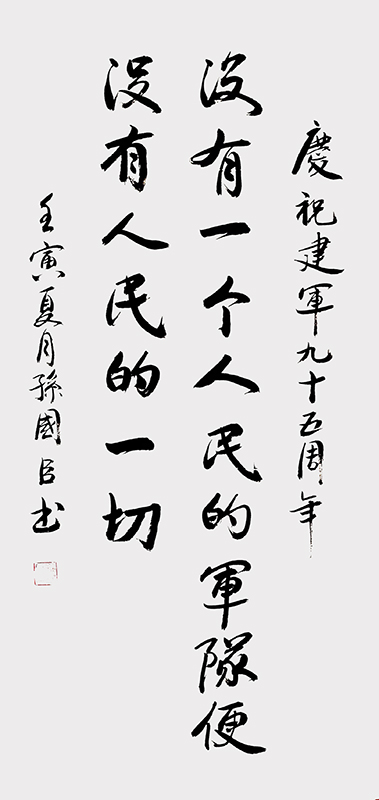 慶祝建軍九十五周年
没有一个人民的軍隊便
没有人民的一切
壬寅夏月孫國臣书